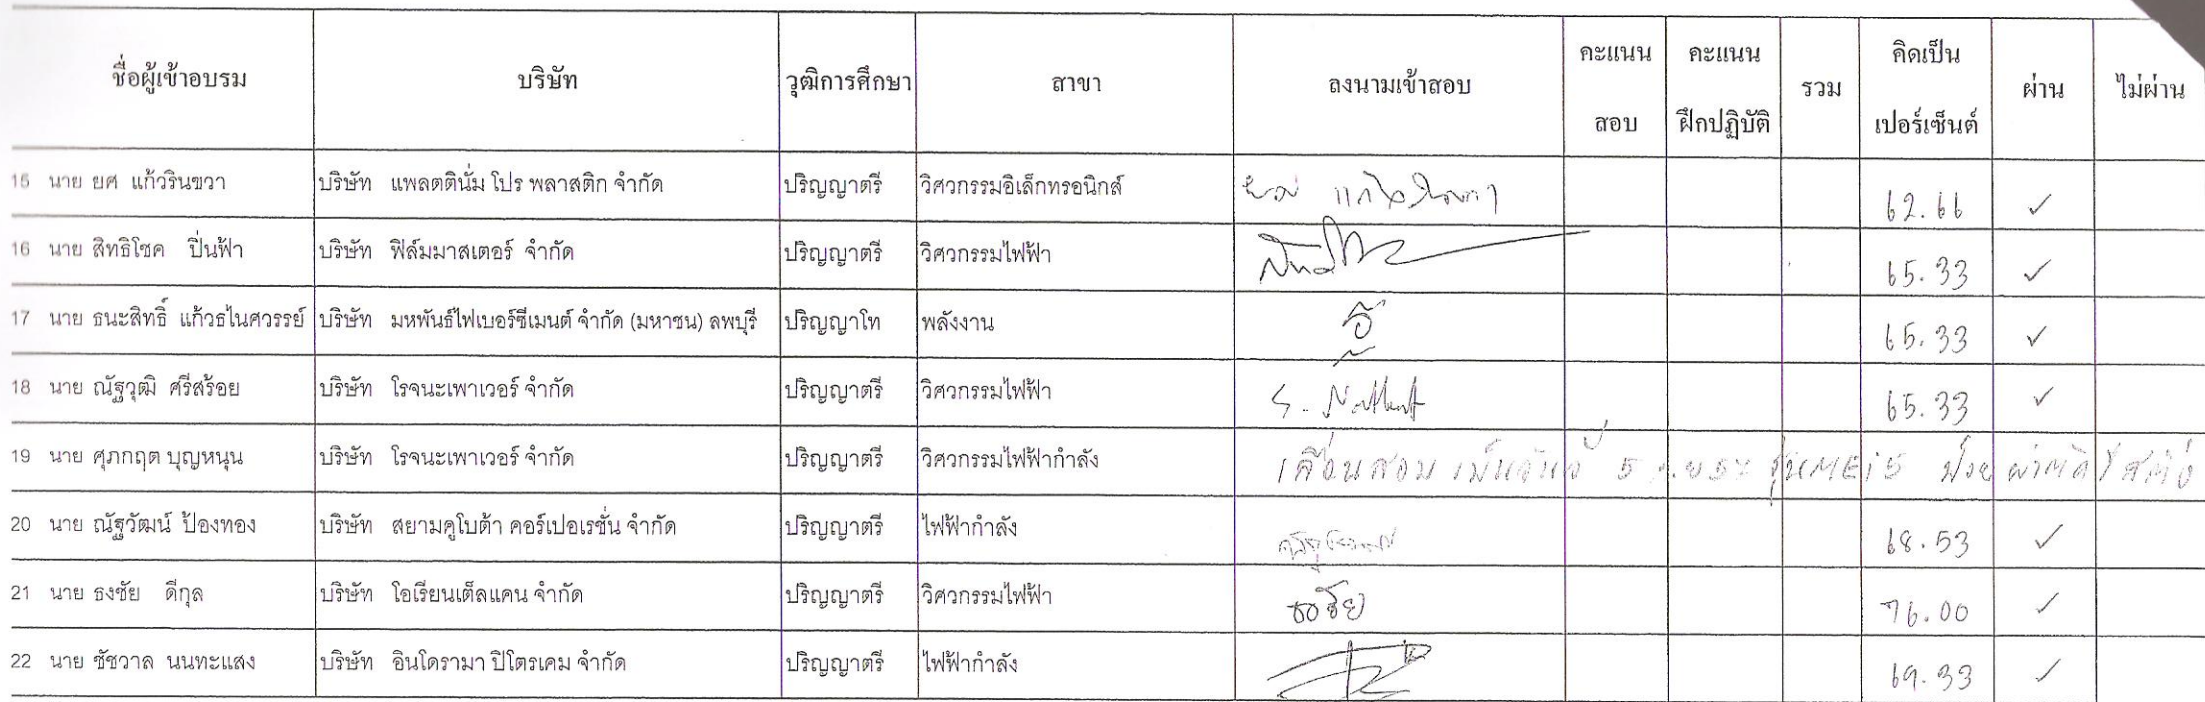 ชื่อผู้เข้าอบรม บริษัท วุฒิการศึกษา สาขา ลงนามเข้าสอบ คะแนนสอบ คะแนนฝึกปฏิบัติ รวม คิดเป็นเปอร์เซ็นต์ ผ่าน ไม่ผ่าน
15 นาย ยศ แก้วรินขวา บริษัท แพลตตินั่ม โปร พลาสติก จำกัด ปริญญาตรี วิศวกรรมอิเล็กทรอนิกส์ 62.66 ✓
16 นาย สิทธิโชค ปิ่นฟ้า บริษัท ฟิล์มมาสเตอร์ จำกัด ปริญญาตรี วิศวกรรมไฟฟ้า 65.33 ✓
17 นาย ธนะสิทธิ์ แก้วธไนศวรรย์ บริษัท มหพันธ์ไฟเบอร์ซีเมนต์ จำกัด (มหาชน) ลพบุรี ปริญญาโท พลังงาน 65.33 ✓
18 นาย ณัฐวุฒิ ศรีสร้อย บริษัท โรจนะเพาเวอร์ จำกัด ปริญญาตรี วิศวกรรมไฟฟ้า 65.33 ✓
19 นาย ศุภกฤต บุญหนุน บริษัท โรจนะเพาเวอร์ จำกัด ปริญญาตรี วิศวกรรมไฟฟ้ากำลัง เลื่อนสอบ เป็นวันที่ 5
20 นาย ณัฐวัฒน์ ป้องทอง บริษัท สยามคูโบต้า คอร์เปอเรชั่น จำกัด ปริญญาตรี ไฟฟ้ากำลัง 68.53 ✓
21 นาย ธงชัย ดีกุล บริษัท โอเรียนเต็ลแคน จำกัด ปริญญาตรี วิศวกรรมไฟฟ้า ธงชัย 76.00 ✓
22 นาย ชัชวาล นนทะแสง บริษัท อินโดรามา ปิโตรเคม จำกัด ปริญญาตรี ไฟฟ้ากำลัง 69.33 ✓